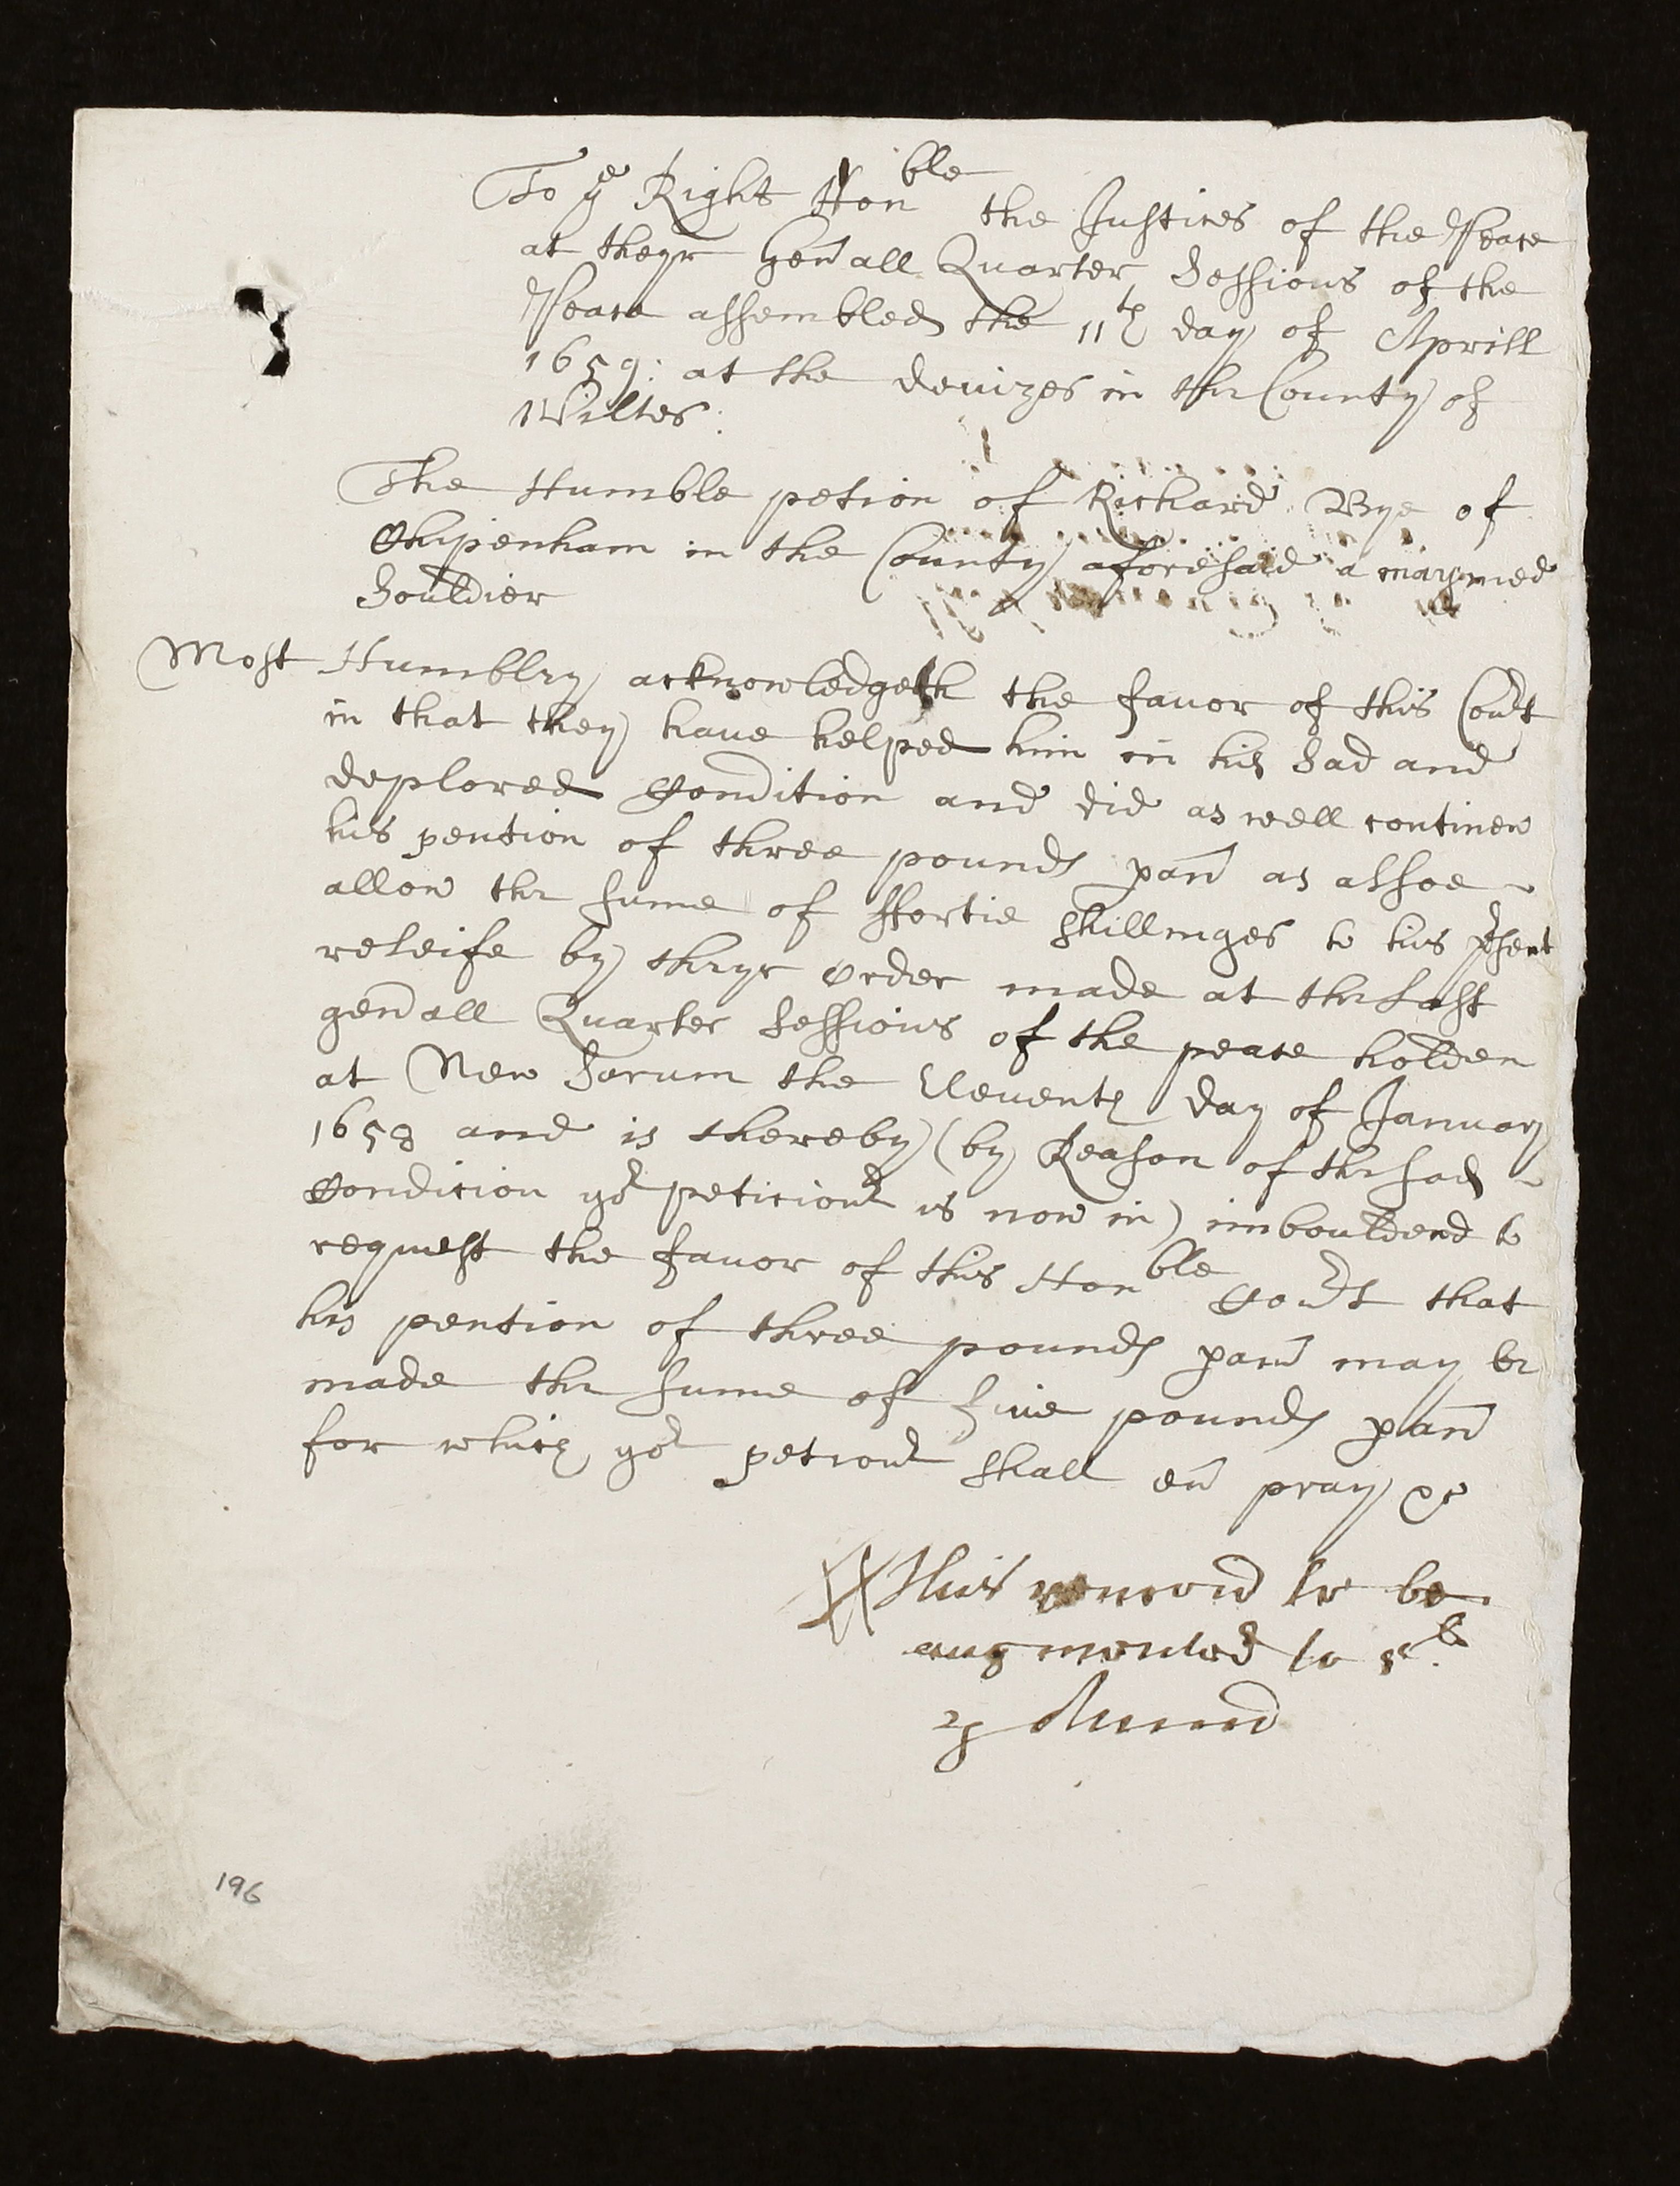 To ye Right Honble the Justices of the Peace
at theyr Genall Quarter Sessions of the
Peace assembled the 11th day of Aprill
1659: at the devizes in the County of
Wiltes:
The Humble petion of Richard Bye of
Chipenham in the County aforesaid a maymed
Souldier
Most Humbley acknowledgeth the favor of this Court
in that they have helped him in his Sad and
deplored Condition and did as well continew
his pention of three pounds p ann as allsoe
allow the sume of ffortie shillinges to his psent
releife by theyr order made at the Last
genall Quarter Sessions of the peace holden
at New Sarum the Eleventh day of January
1658 and is thereby (by Reason of the sad
Condicion yor peticionr is now in) imbouldend to
request the favor of this Honble Court that
his pention of three pounds p ann may be
made the sume of five pounds p ann
for which yor petionr shall evr pray &c
This pencion to be
augmented to 5li.
p Annum
196